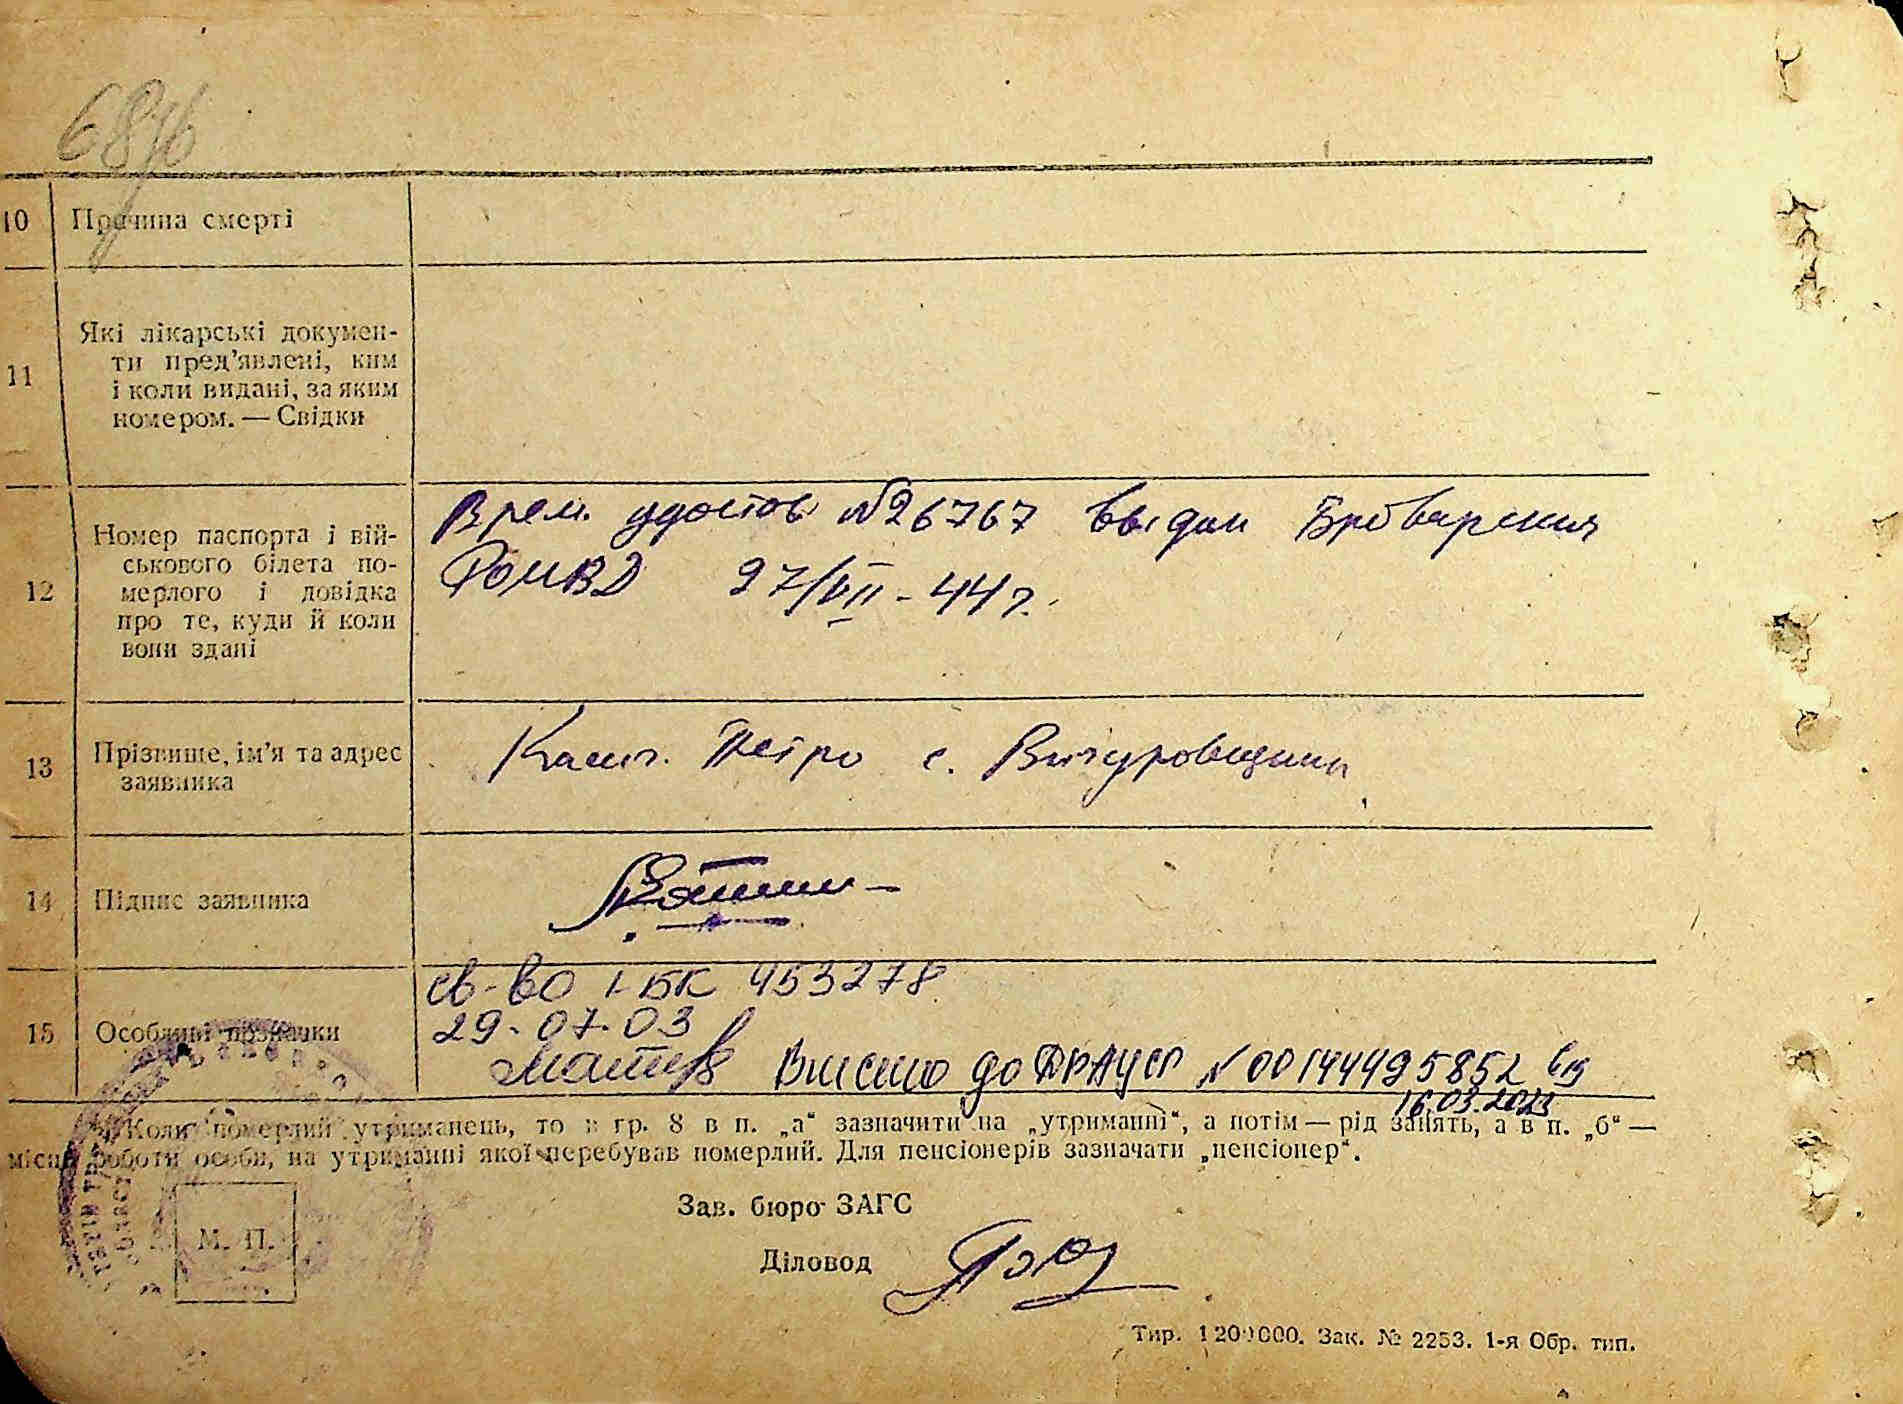 10 Причина смерті
11 Які лікарські докумен-
ти пред’явлені, ким
і коли видані, за яким
номером. — Свідки
12 Номер паспорта і вій-
ськового білета по-
мерлого і довідка
про те, куди й коли
вони здані
Врем. удостов №26767 выдан Броварским
РОМВД 27/VII - 44 г.
13 Прізвище, ім’я та адрес
заявника
Петро с. Вигуровщина
14 Підпис заявника
15 Особливі позначки
св-во I-БК 453278
29-07-03
Внесено до ДРАЦСГ №00144495852 від
16.03.2023
Коли померлий утриманець, то в гр. 8 в п. „а“ зазначити на „утриманні“, а потім — рід занять, а в п. „б“ —
місце роботи особи, на утриманні якої перебував померлий. Для пенсіонерів зазначати „пенсіонер“.
Зав. бюро ЗАГС
М. П.
Діловод
Тир. 1200000. Зак. № 2253. 1-я Обр. тип.